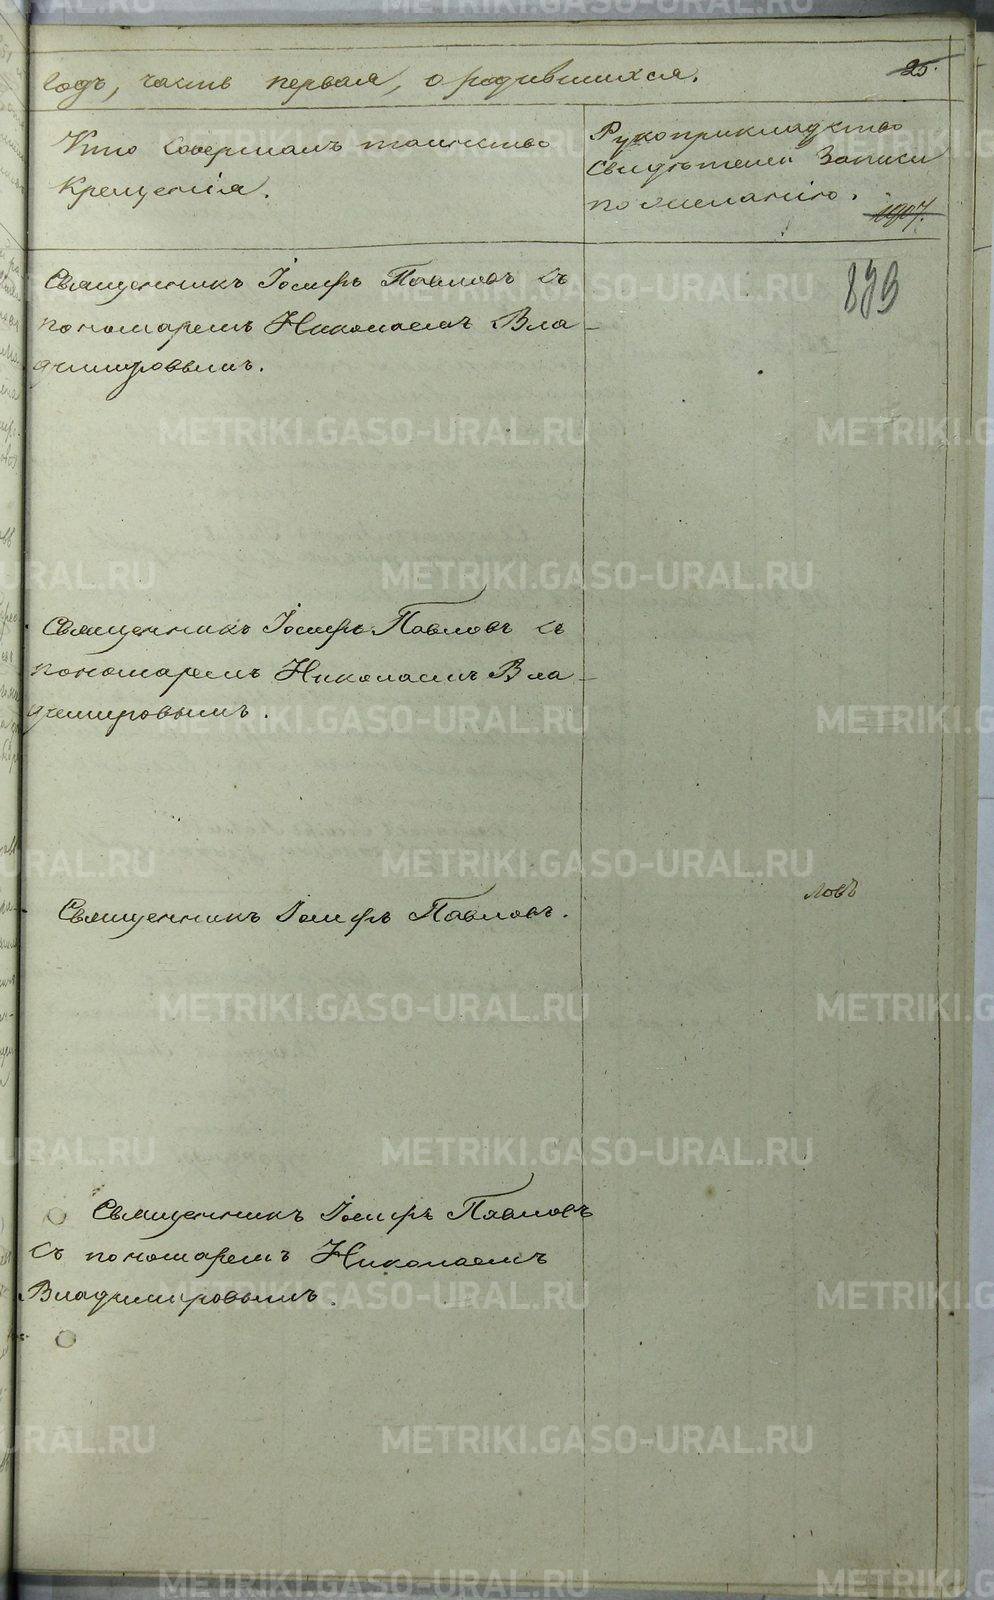 годъ, часть первая, о родившихся.
25.
Кто совершалъ таинство
крещенія.
Рукоприкладство
свидѣтелей записи
по желанію.
1907.
893
Священникъ Іосифъ Павловъ съ
пономаремъ Николаемъ Вла-
димировымъ.
Священникъ Іосифъ Павловъ съ
пономаремъ Николаемъ Вла-
димировымъ.
Священникъ Іосифъ Павловъ.
ловъ
Священникъ Іосифъ Павловъ
съ пономаремъ Николаемъ
Владимировымъ.
METRIKI.GASO-URAL.RU